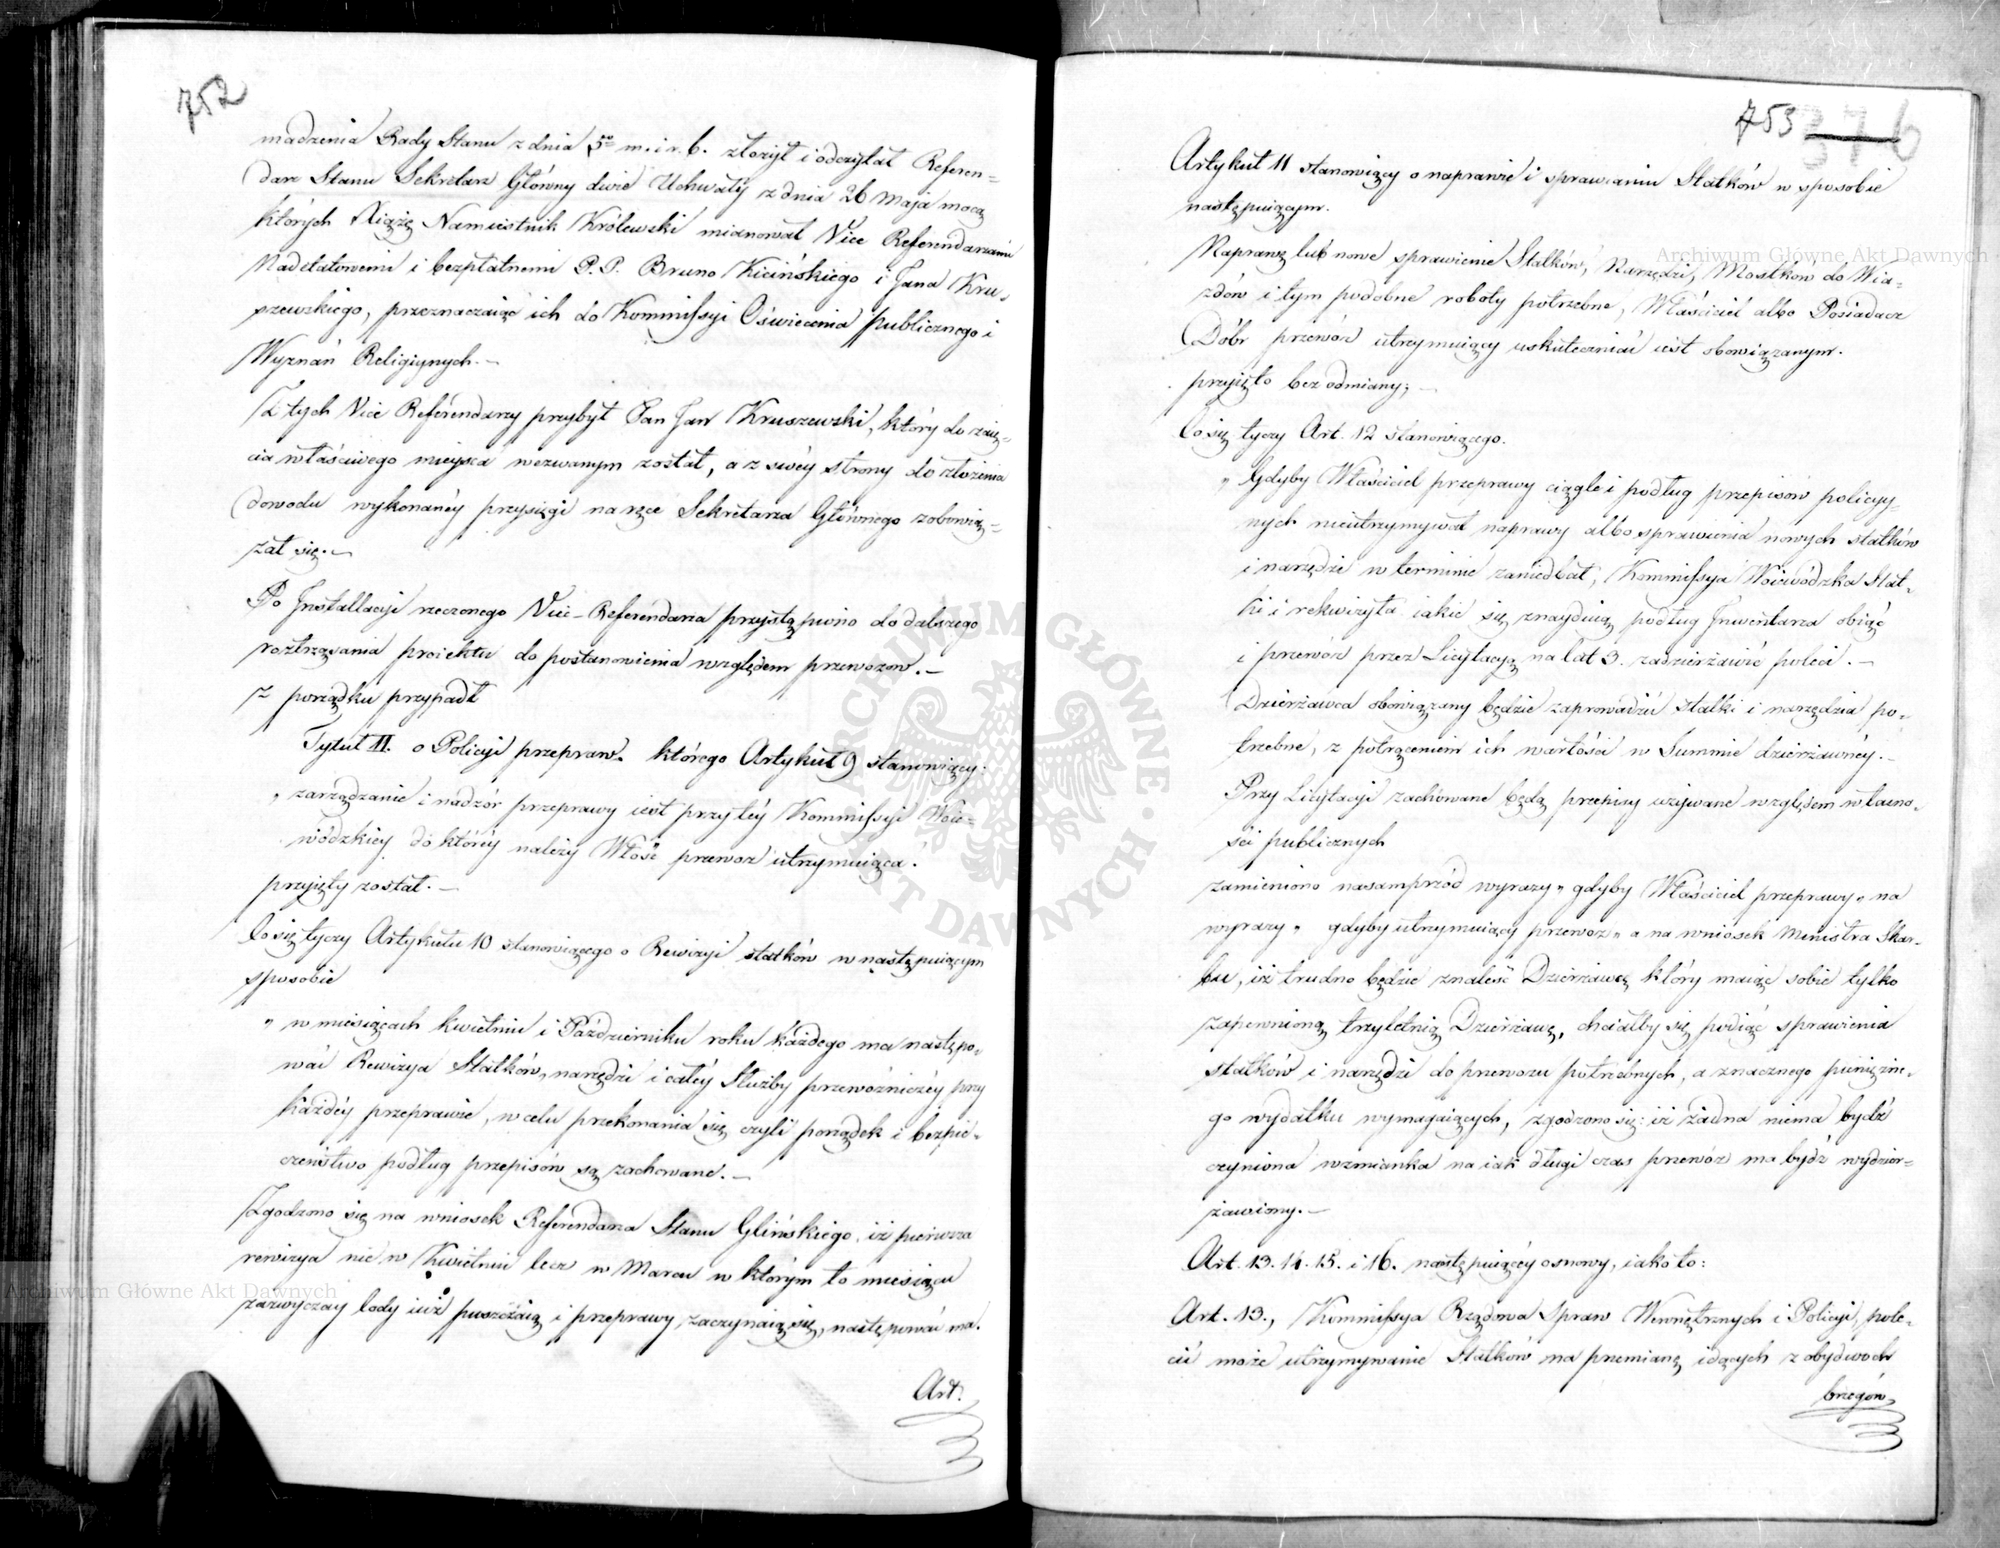 752
madzenia Rady Stanu z dnia 5go m. i r. b. złożył i odczytał Referen=
darz Stanu Sekretarz Główny dwie Uchwały z dnia 26 Maja mocą
których Xiążę Namiestnik Królewski mianował Vice Referendarzami
Nadetatowemi i bezpłatnemi P. P. Bruno Kicińskiego i Jana Kru=
szewskiego, przeznaczaiąc ich do Kommissyi Oświecenia publicznego i
Wyznań Religiynych.—
Z tych Vice Referendarzy przybył Pan Jan Kruszewski, który do zaię=
cia właściwego mieysca wezwanym został, a z swéy strony do złożenia
dowodu wykonanéy przysięgi na ręce Sekretarza Głównego zobowią=
zał się.—
Po Installacyi rzeczonego Vice-Referendarza przystąpiono do dalszego
roztrząsania proiektu do postanowienia względem przewozow.—
z porządku przypadł
Tytuł II. o Policyi przepraw. którego Artykuł 9 stanowiący:
„ zarządzanie i nadzór przeprawy iest przy téy Kommissyi Woie=
wódzkiey do któréy należy Włość przewoz utrzymuiąca.
przyięty został.—
Co się tyczy Artykułu 10 stanowiącego o Rewizyi statków w następuiącym
sposobie
„ w miesiącach kwietniu i Październiku roku każdego ma następo=
wać Rewizya Statków, narzędzi i całéy Służby przewoźniczéy przy
każdéy przeprawie, w celu przekonania się czyli porządek i bezpie=
czeństwo podług przepisów są zachowane.—
Zgodzono się na wniosek Referendarza Stanu Glińskiego, iż pierwsza
rewizya nie w Kwietniu lecz w Marcu w którym to miesiącu
zazwyczay lody iuż puszczaią i przeprawy zaczynaią się, następować ma.
Art.
753
376
Artykuł 11 stanowiący o naprawie i sprawianiu Statków w sposobie
następuiącym.
Naprawę lub nowe sprawienie Statków, Narzędzi, Mostków do Wia=
zdów i tym podobne roboty potrzebne, Właściciel albo Posiadacz
Dóbr przewóz utrzymuiący uskuteczniać iest obowiązanym.
przyięto bez odmiany;—
Co się tyczy Art. 12 stanowiącego.
„ Gdyby Właściciel przeprawy ciągle i podług przepisów policyy=
nych nieutrzymywał naprawy albo sprawienia nowych statków
i narzędzie w terminie zaniedbał, Kommissya Woiewódzka Stat=
ki i rekwizyta iakie się znayduią podług Inwentarza obiąć
i przewóz przez Licytacyą na lat 3. zadzierżawić poleci.—
Dzierżawca obowiązany będzie zaprowadzić statki i narzędzia po=
trzebne, z potrąceniem ich wartości w Summie dzierżawnéy.—
Przy Licytacyi zachowane będą przepisy używane względem własno=
ści publicznych
zamieniono nasamprzód wyrazy „ gdyby Właściciel przeprawy „ na
wyrazy „ gdyby utrzymuiący przewoz „ a na wniosek Ministra Skar=
bu, iż trudno będzie znaleść Dzierżawcę który maiąc sobie tylko
zapewnioną trzyletnią Dzierżawę, chciałby się podiąć sprawienia
statków i narzędzi do przewozu potrzebnych, a znacznego pieniężne=
go wydatku wymagaiących, zgodzono się: iż żadna niema bydź
czyniona wzmianka na iak długi czas przewóz ma bydź wydzier=
żawiony.—
Art. 13. 14. 15. i 16. następuiącéy osnowy, iako to:
Art. 13., Kommissya Rządowa Spraw Wewnętrznych i Policyi, pole=
cić może utrzymywanie Statków na przemianę idących z obydwóch
brzegów
Archiwum Główne Akt Dawnych
Archiwum Główne Akt Dawnych
ARCHIWUM GŁÓWNE AKT DAWNYCH